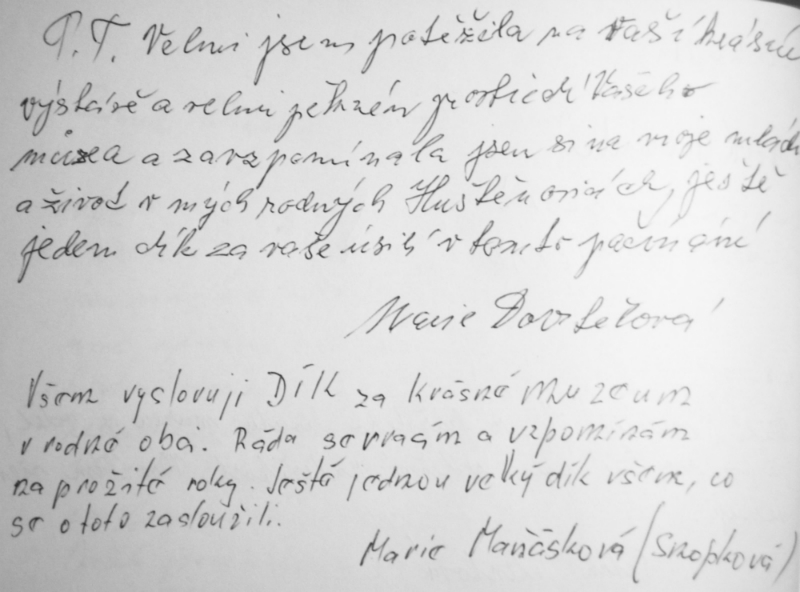 P.T. Velmi jsem potěžila na vaší krásné
výstavě a velmi pěkném prostředí Vašeho
můzea a zavzpomínala jsem si na moje mládí
a život v mých rodných Huštěnovicích, ještě
jeden dík za vaše úsilí v tomto počínání
Marie
Všem vyslovuji Dík za krásné muzeum
v rodné obci. Ráda se vracím a vzpomínám
na prožité roky. Ještě jednou velký dík všem, co
se o toto zasloužili.
Marie Maňásková (Snopková)